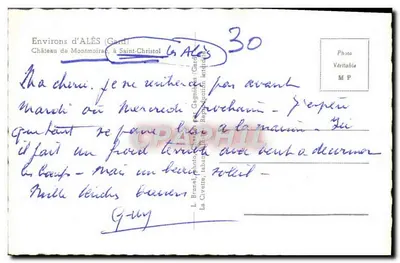 Environs d'ALÈS (Gard)
Château de Montmoirac à Saint-Christol
les Alès
30
Photo
Véritable
M F
Ma chérie. Je ne rentrerai pas avant
mardi ou mercredi prochain - J'espère
que tout se passe bien à la maison - Ici
il fait un froid terrible avec vent à décorner
les boeufs - Mais un beau soleil -
Mille tendres baisers
Guy
CPAPHIL